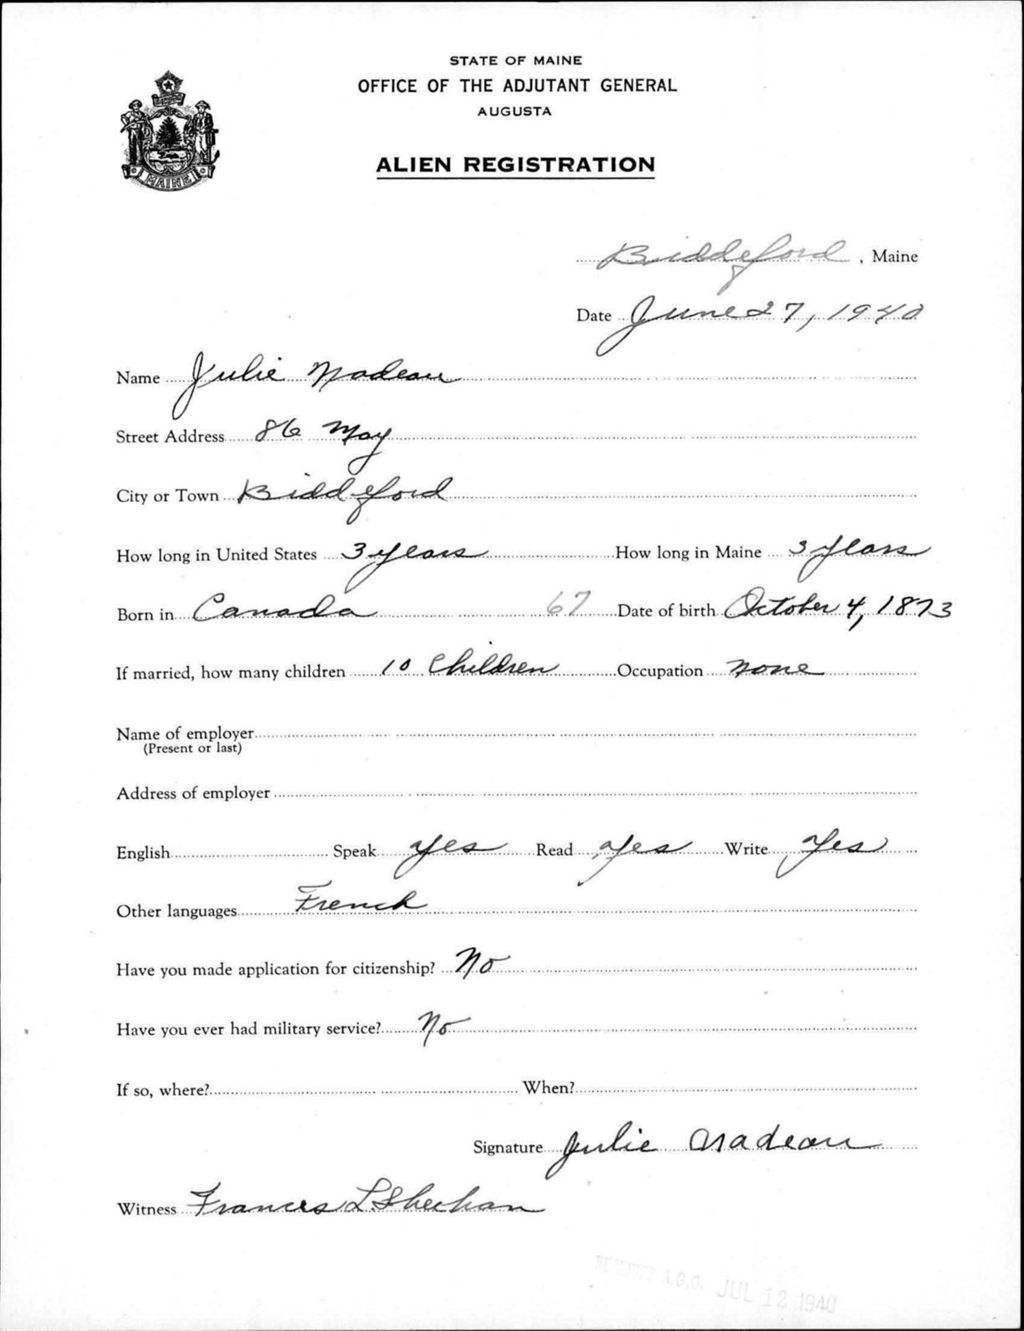 STATE OF MAINE
OFFICE OF THE ADJUTANT GENERAL
AUGUSTA
ALIEN REGISTRATION
MAINE
Biddeford, Maine
Date June 27, 1940
Name Julie Nadeau
Street Address 86 May
City or Town Biddeford
How long in United States 3 years How long in Maine 3 years
Born in Canada 67 Date of birth October 4, 1873
If married, how many children 10 Children Occupation none
Name of employer
(Present or last)
Address of employer
English Speak yes Read yes Write yes
Other languages French
Have you made application for citizenship? No
Have you ever had military service? No
If so, where? When?
Signature Julie Nadeau
Witness Frances L Sheehan
A.G.O. JUL 12 1940